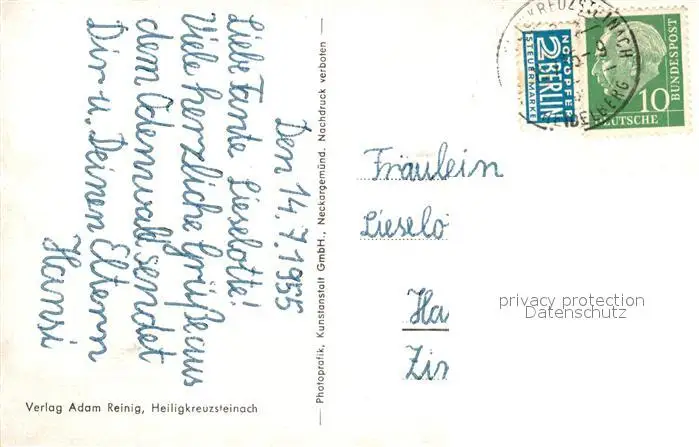 Den 14.7.1955
Liebe Tante Lieselotte!
Viele herzliche Grüße aus
dem Odenwald sendet
Dir u. Deinen Eltern
Hansi
Verlag Adam Reinig, Heiligkreuzsteinach
Photoprafik, Kunstanstalt GmbH., Neckargemünd. Nachdruck verboten
NOTOPFER
2 BERLIN
STEUERMARKE
DEUTSCHE
BUNDESPOST
10
KREUZSTEINACH
Fräulein
Lieselo
Ha
Zir
privacy protection
Datenschutz